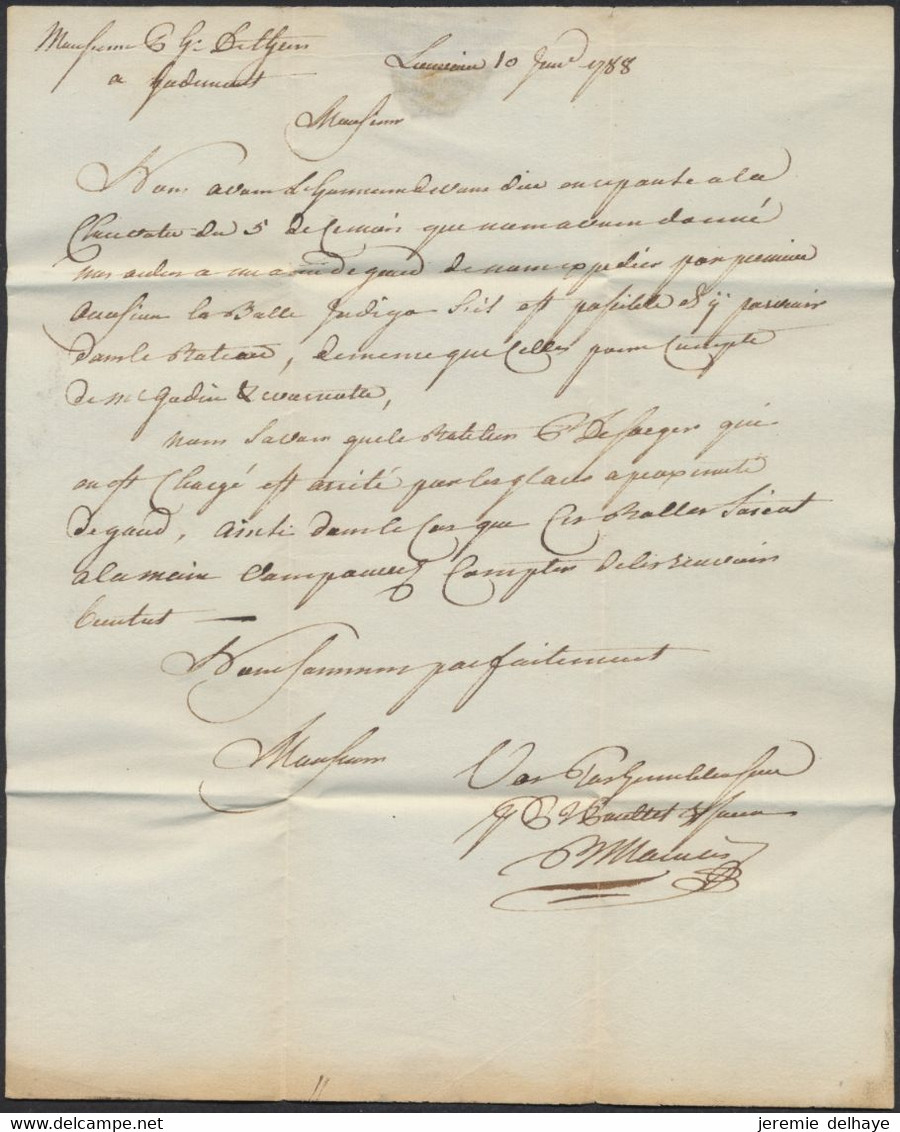 Monsieur
a hodimont
Louvain 10 Janv 1788
Monsieur
Nous avons L'honneur de vous dire en reponse a la
Chere votre du 5 de Ce mois que nous avons donné
nos ordres a un ami de gand de nous expedier par premiere
occasion la Balle Indigo s'il est possible d'y parvenir
dans le Bateau, de meme que Celles pour Compte
de
nous savons que le Batelier De Saeger qui
en est Chargé est arreté par les glaces a proximité
de gand, ainsi dans le Cas que Ces Balles soient
a la main vous pouvez Compter de les recevoir
bientot —
Nous sommes parfaitement
Monsieur
Vos Tres humbles serv
jeremie delhaye